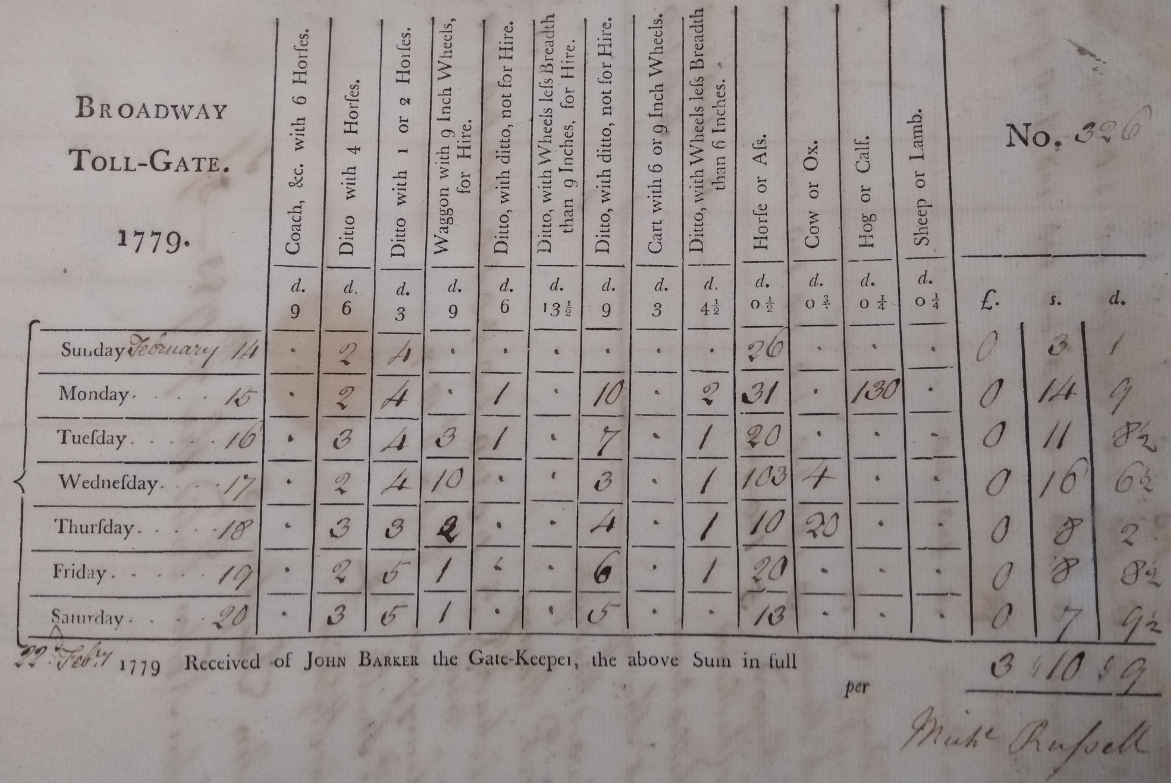 BROADWAY
TOLL-GATE.
1779.
Coach, &c. with 6 Horſes.
Ditto with 4 Horſes.
Ditto with 1 or 2 Horſes.
Waggon with 9 Inch Wheels,
for Hire.
Ditto, with ditto, not for Hire.
Ditto, with Wheels leſs Breadth
than 9 Inches, for Hire.
Ditto, with ditto, not for Hire.
Cart with 6 or 9 Inch Wheels.
Ditto, with Wheels leſs Breadth
than 6 Inches.
Horſe or Aſs.
Cow or Ox.
Hog or Calf.
Sheep or Lamb.
No. 326
d. d. d. d. d. d. d. d. d. d. d. d. d. £. s. d.
9 6 3 9 6 13½ 9 3 4½ 0½ 0¾ 0¼ 0¼
Sunday February 14 · 2 4 · · · · · · 26 · · · 0 3 1
Monday 15 · 2 4 · 1 · 10 · 2 31 · 130 · 0 14 9
Tueſday 16 · 3 4 3 1 · 7 · 1 20 · · · 0 11 8½
Wedneſday 17 · 2 4 10 · · 3 · 1 103 4 · · 0 16 6½
Thurſday 18 · 3 3 2 · · 4 · 1 10 20 · · 0 8 2
Friday 19 · 2 5 1 · · 6 · 1 20 · · · 0 8 8½
Saturday 20 · 3 5 1 · · 5 · · 13 · · · 0 7 9½
22d Febry 1779 Received of JOHN BARKER the Gate-Keeper, the above Sum in full
3 10 9
per
Michl Ruſsell